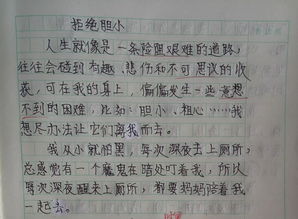 拒绝胆小
人生就像是一条险阻艰难的道路，
往往会碰到有趣、悲伤和不可思议的收
获，可在我的身上，偏偏发生一些意想
不到的困难，比如：胆小、粗心……我
想尽办法让它们离我而去。
我从小就怕黑，每次深夜去上厕所，
总感觉有一个魔鬼在暗处盯着我，所以
每次深夜醒来上厕所，都要妈妈陪着我
一起去。